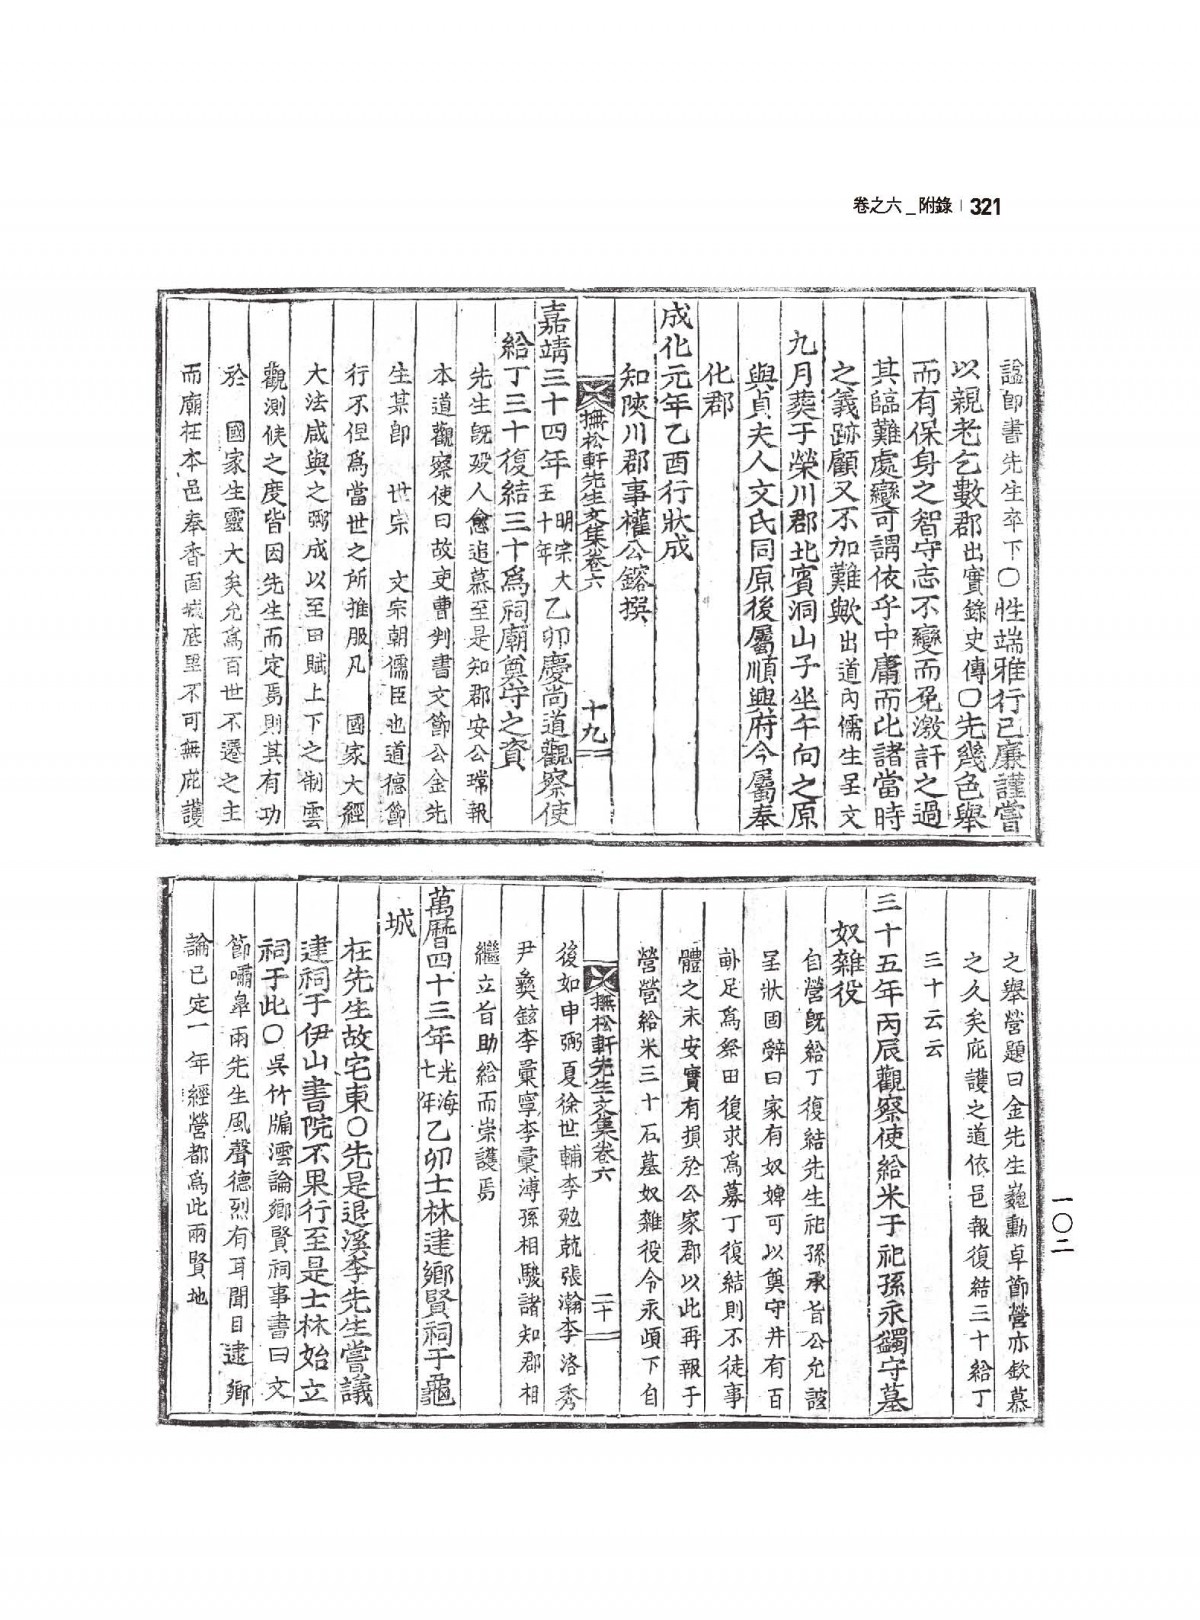 卷之六_附錄 | 321
諡卽書先生卒下〇性端雅行己廉謹嘗
以親老乞數郡出實錄史傳〇先幾色擧
而有保身之智守志不變而免激訐之過
其臨難處變可謂依乎中庸而比諸當時
之義跡顧又不加難歟出道內儒生呈文
九月葬于榮川郡北賓洞山子坐午向之原
與貞夫人文氏同原後屬順興府今屬奉
化郡
成化元年乙酉行狀成
知陜川郡事權公鎔撰
撫松軒先生文集卷六 十九
嘉靖三十四年明宗大王十年乙卯慶尚道觀察使
給丁三十復結三十爲祠廟奠守之資
先生旣歿人愈追慕至是知郡安公瑺報
本道觀察使曰故吏曹判書文節公金先
生某卽 世宗 文宗朝儒臣也道德節
行不但爲當世之所推服凡 國家大經
大法咸與之弼成以至田賦上下之制雲
觀測候之度皆因先生而定焉則其有功
於 國家生靈大矣允爲百世不遷之主
而廟在本邑奉香面城底里不可無庇護
之擧營題曰金先生巍勳卓節營亦欽慕
之久矣庇護之道依邑報復結三十給丁
三十云云
三十五年丙辰觀察使給米于祀孫永蠲守墓
奴雜役
自營旣給丁復結先生祀孫承旨公允諡
呈狀固辭曰家有奴婢可以奠守幷有百
畝足爲祭田復求爲募丁復結則不徒事
體之未安實有損於公家郡以此再報于
營營給米三十石墓奴雜役令永頉下自
撫松軒先生文集卷六 二十
後如申弼夏徐世輔李勉兢張瀚李洛秀
尹彝鉉李彙寧李彙溥孫相駿諸知郡相
繼立旨助給而崇護焉
萬曆四十三年光海七年乙卯士林建鄕賢祠于龜
城
在先生故宅東〇先是退溪李先生嘗議
建祠于伊山書院不果行至是士林始立
祠于此〇吳竹牖澐論鄕賢祠事書曰文
節嘯皐兩先生風聲德烈有耳聞目逮鄕
論已定一年經營都爲此兩賢地
一〇二